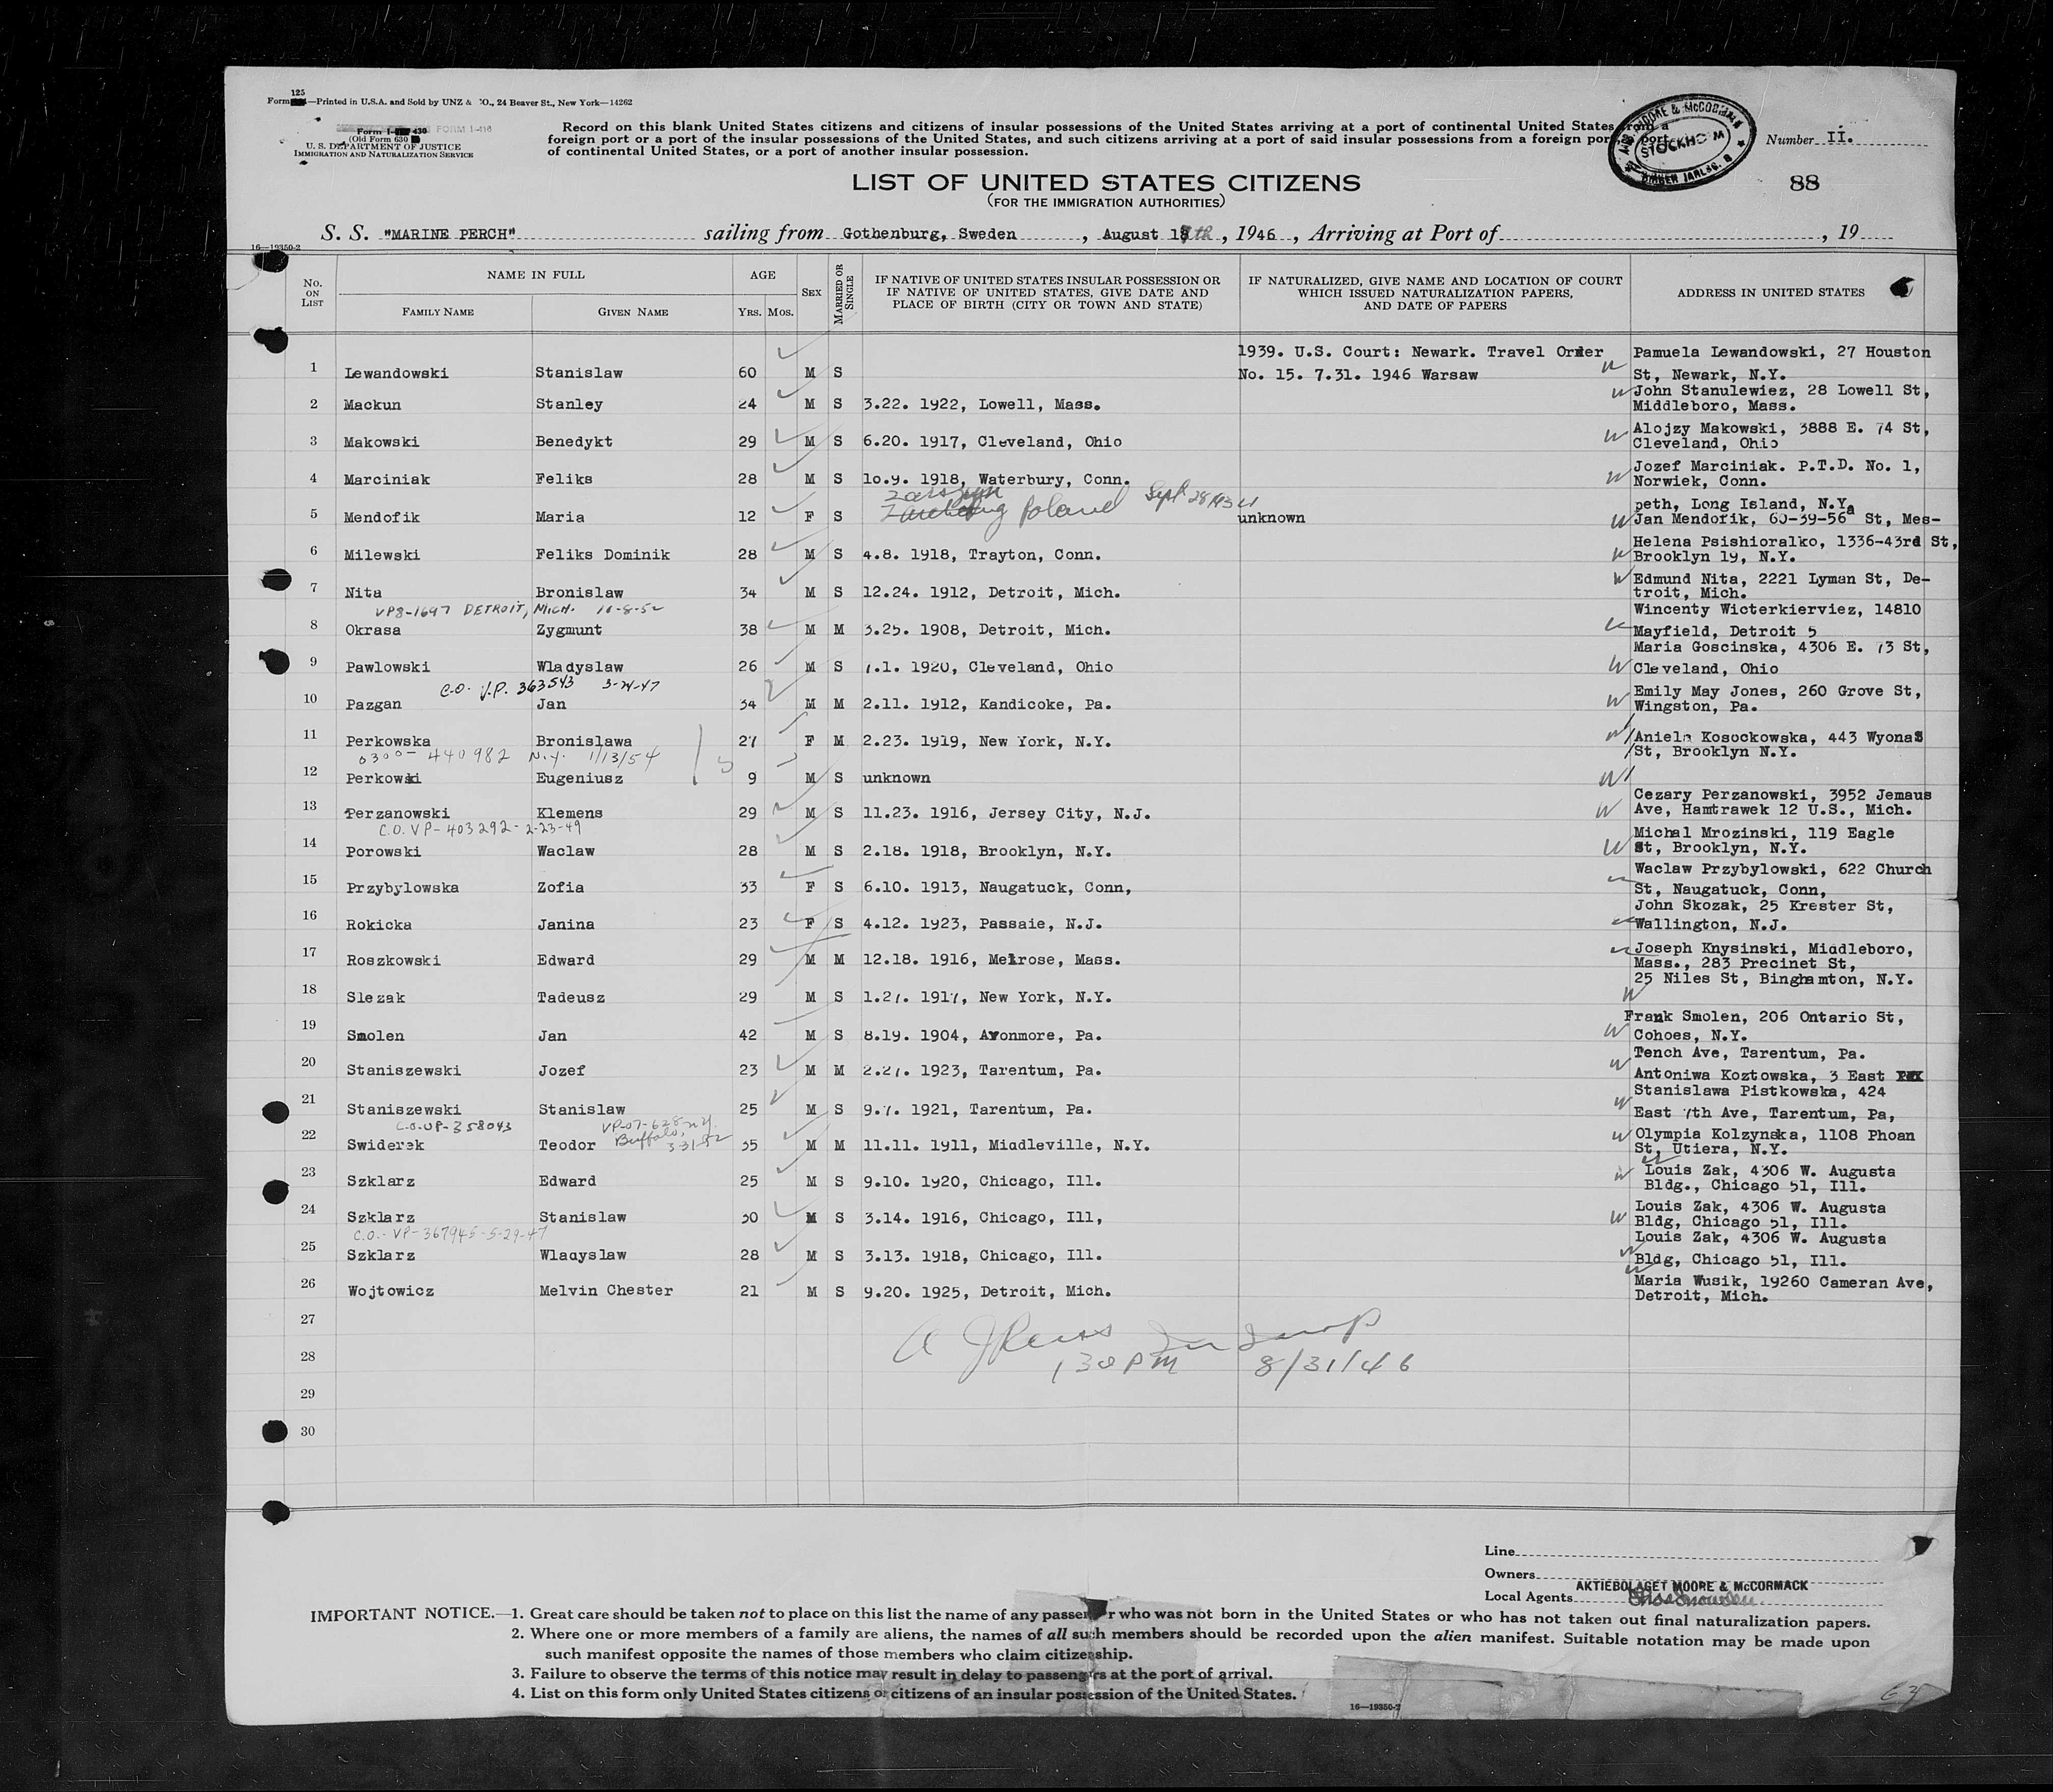 125
Form —Printed in U.S.A. and Sold by UNZ & CO., 24 Beaver St., New York—14262
Form I- 430 FORM I-416
(Old Form 630
U. S. DEPARTMENT OF JUSTICE
IMMIGRATION AND NATURALIZATION SERVICE
Record on this blank United States citizens and citizens of insular possessions of the United States arriving at a port of continental United States from a
foreign port or a port of the insular possessions of the United States, and such citizens arriving at a port of said insular possessions from a foreign port
of continental United States, or a port of another insular possession.
MOORE & McCORMACK
STOCKHOLM
BIRGER JARLSG. 8
Number II.
88
LIST OF UNITED STATES CITIZENS
(FOR THE IMMIGRATION AUTHORITIES)
16—19350-2
S. S. "MARINE PERCH" sailing from Gothenburg, Sweden, August 18th, 1946, Arriving at Port of , 19
No. ON LIST NAME IN FULL AGE SEX MARRIED OR SINGLE IF NATIVE OF UNITED STATES INSULAR POSSESSION OR IF NATIVE OF UNITED STATES, GIVE DATE AND PLACE OF BIRTH (CITY OR TOWN AND STATE) IF NATURALIZED, GIVE NAME AND LOCATION OF COURT WHICH ISSUED NATURALIZATION PAPERS, AND DATE OF PAPERS ADDRESS IN UNITED STATES
FAMILY NAME GIVEN NAME YRS. MOS.
1939. U.S. Court: Newark. Travel Order Pamuela Lewandowski, 27 Houston
1 Lewandowski Stanislaw 60 M S No. 15. 7.31. 1946 Warsaw St, Newark, N.Y.
2 Mackun Stanley 24 M S 3.22. 1922, Lowell, Mass. John Stanulewiez, 28 Lowell St,
Middleboro, Mass.
3 Makowski Benedykt 29 M S 6.20. 1917, Cleveland, Ohio Alojzy Makowski, 3888 E. 74 St,
Cleveland, Ohio
4 Marciniak Feliks 28 M S 10.9. 1918, Waterbury, Conn. Jozef Marciniak. P.T.D. No. 1,
Norwiek, Conn.
Zarszyn Poland Sept 28 1934
peth, Long Island, N.Y.
5 Mendofik Maria 12 F S unknown Jan Mendofik, 60-39-56a St, Mes-
6 Milewski Feliks Dominik 28 M S 4.8. 1918, Trayton, Conn. Helena Psishioralko, 1336-43rd St,
Brooklyn 19, N.Y.
7 Nita Bronislaw 34 M S 12.24. 1912, Detroit, Mich. Edmund Nita, 2221 Lyman St, De-
troit, Mich.
VP8-1697 DETROIT, MICH. 10-8-52
Wincenty Wicterkierviez, 14810
8 Okrasa Zygmunt 38 M M 3.25. 1908, Detroit, Mich. Mayfield, Detroit 5
Maria Goscinska, 4306 E. 73 St,
9 Pawlowski Wladyslaw 26 M S 7.1. 1920, Cleveland, Ohio Cleveland, Ohio
C.O. V.P. 363543 3-24-47
10 Pazgan Jan 34 M M 2.11. 1912, Kandicoke, Pa. Emily May Jones, 260 Grove St,
Wingston, Pa.
11 Perkowska Bronislawa 27 F M 2.23. 1919, New York, N.Y. Aniela Kosockowska, 443 Wyona
St, Brooklyn N.Y.
0300-440982 N.Y. 1/13/54
12 Perkowski Eugeniusz 9 M S unknown
Cezary Perzanowski, 3952 Jemaus
13 Perzanowski Klemens 29 M S 11.23. 1916, Jersey City, N.J. Ave, Hamtrawek 12 U.S., Mich.
C.O. VP-403292-2-23-49
Michal Mrozinski, 119 Eagle
14 Porowski Waclaw 28 M S 2.18. 1918, Brooklyn, N.Y. St, Brooklyn, N.Y.
Waclaw Przybylowski, 622 Church
15 Przybylowska Zofia 33 F S 6.10. 1913, Naugatuck, Conn, St, Naugatuck, Conn,
John Skozak, 25 Krester St,
16 Rokicka Janina 23 F S 4.12. 1923, Passaie, N.J. Wallington, N.J.
17 Roszkowski Edward 29 M M 12.18. 1916, Melrose, Mass. Joseph Knysinski, Middleboro,
Mass., 283 Precinet St,
25 Niles St, Binghamton, N.Y.
18 Slezak Tadeusz 29 M S 1.27. 1917, New York, N.Y.
Frank Smolen, 206 Ontario St,
19 Smolen Jan 42 M S 8.19. 1904, Avonmore, Pa. Cohoes, N.Y.
Tench Ave, Tarentum, Pa.
20 Staniszewski Jozef 23 M M 2.27. 1923, Tarentum, Pa. Antoniwa Koztowska, 3 East
Stanislawa Pistkowska, 424
21 Staniszewski Stanislaw 25 M S 9.7. 1921, Tarentum, Pa. East 7th Ave, Tarentum, Pa,
C.O. VP-358043 VP-07-628 N.Y. Buffalo, 3-31-52
22 Swiderek Teodor 35 M M 11.11. 1911, Middleville, N.Y. Olympia Kolzynska, 1108 Phoan
St, Utiera, N.Y.
23 Szklarz Edward 25 M S 9.10. 1920, Chicago, Ill. Louis Zak, 4306 W. Augusta
Bldg., Chicago 51, Ill.
24 Szklarz Stanislaw 30 M S 3.14. 1916, Chicago, Ill, Louis Zak, 4306 W. Augusta
Bldg, Chicago 51, Ill.
C.O.-VP-367945-5-29-47
Louis Zak, 4306 W. Augusta
25 Szklarz Wladyslaw 28 M S 3.13. 1918, Chicago, Ill. Bldg, Chicago 51, Ill.
26 Wojtowicz Melvin Chester 21 M S 9.20. 1925, Detroit, Mich. Maria Wusik, 19260 Cameran Ave,
Detroit, Mich.
27
28 130 PM 8/31/46
29
30
Line
Owners
AKTIEBOLAGET MOORE & McCORMACK
Local Agents
IMPORTANT NOTICE.—1. Great care should be taken not to place on this list the name of any passenger who was not born in the United States or who has not taken out final naturalization papers.
2. Where one or more members of a family are aliens, the names of all such members should be recorded upon the alien manifest. Suitable notation may be made upon
such manifest opposite the names of those members who claim citizenship.
3. Failure to observe the terms of this notice may result in delay to passengers at the port of arrival.
4. List on this form only United States citizens or citizens of an insular possession of the United States.
16—19350-2